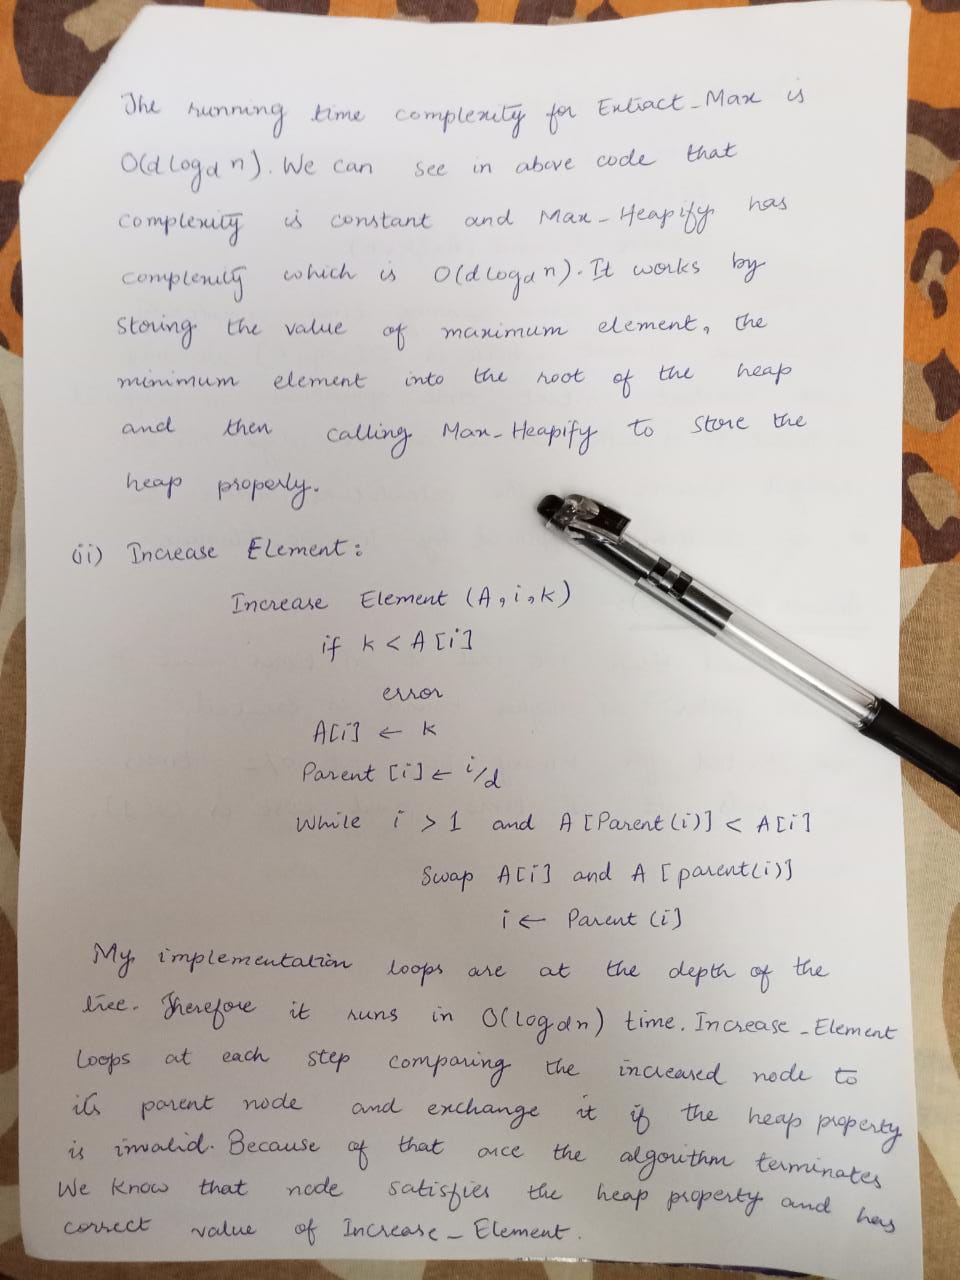 The running time complexity for Extract-Max is
O(d log_d n). We can see in above code that
complexity is constant and Max-Heapify has
complexity which is O(d log_d n). It works by
storing the value of maximum element, the
minimum element into the root of the heap
and then calling Max-Heapify to store the
heap properly.
(ii) Increase Element:
Increase Element (A, i, k)
if k < A[i]
error
A[i] ← k
Parent [i] ← i/d
While i > 1 and A [Parent (i)] < A[i]
Swap A[i] and A [parent(i)]
i ← Parent (i]
My implementation loops are at the depth of the
tree. Therefore it runs in O(log_d n) time. Increase-Element
loops at each step comparing the increased node to
its parent node and exchange it if the heap property
is invalid. Because of that once the algorithm terminates
We know that node satisfies the heap property and has
correct value of Increase-Element.